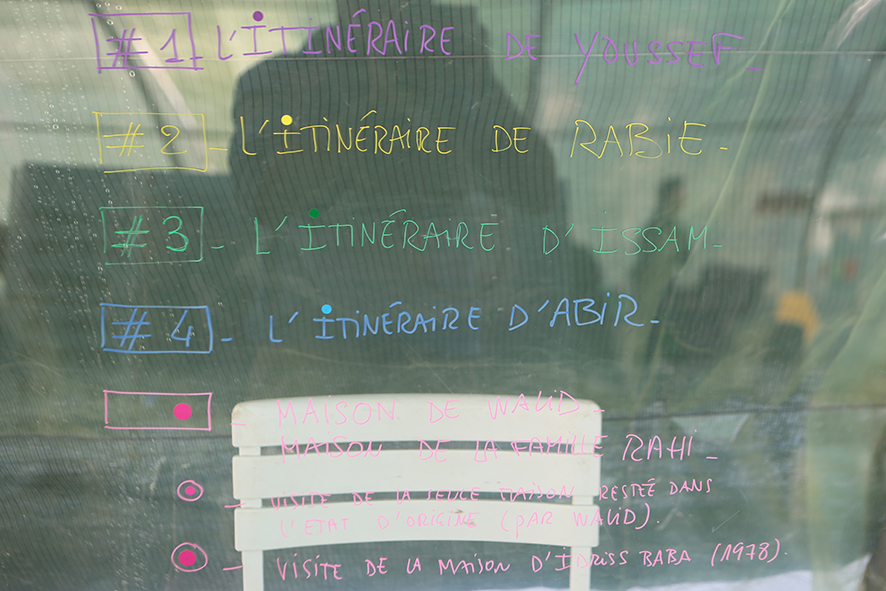 #1 L'ITINÉRAIRE DE YOUSSEF_
#2 _ L'ITINÉRAIRE DE RABIE_
#3 _ L'ITINÉRAIRE D'ISSAM_
#4 _ L'ITINÉRAIRE D'ABIR_
_ MAISON DE WALID_
MAISON DE LA FAMILLE RAHI_
_ VISITE DE LA SEULE MAISON RESTEÉ DANS
L'ETAT D'ORIGINE (PAR WALID).
_ VISITE DE LA MAISON D'IDRISS BABA (1978).